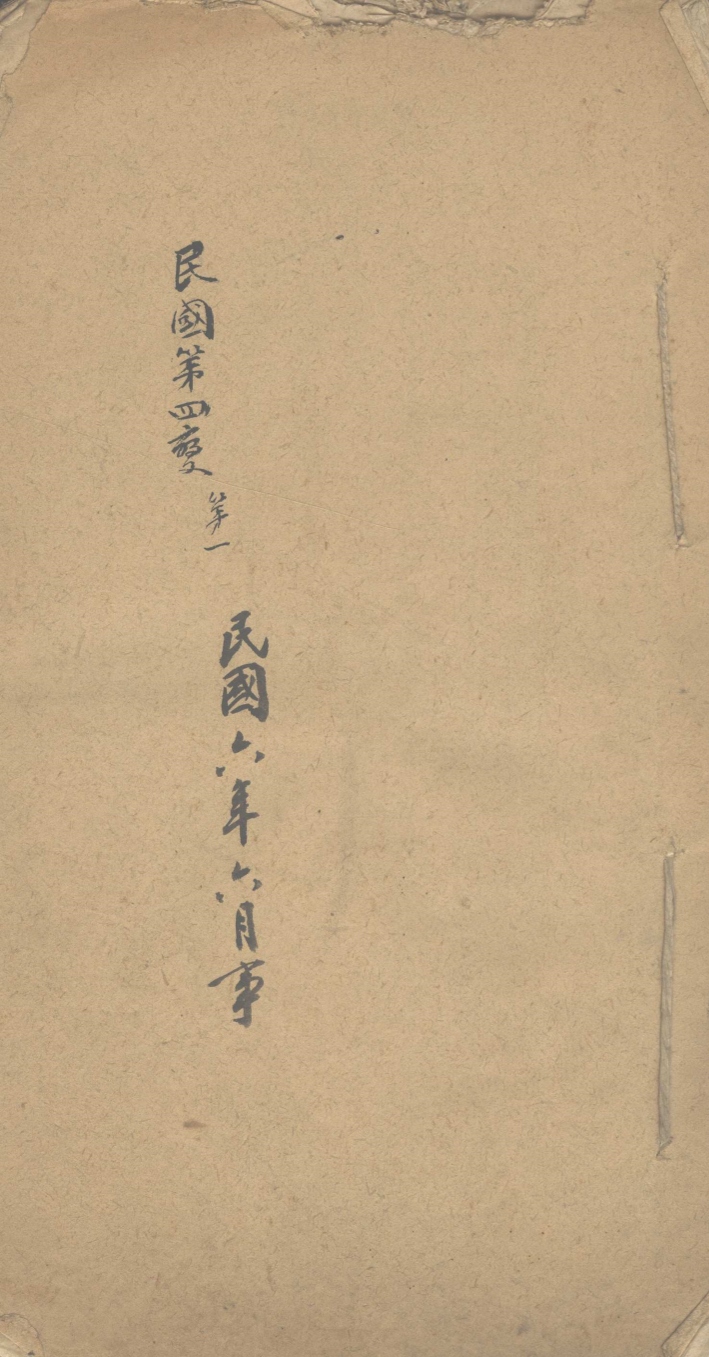 民國第四變
第一
民國六年六月事